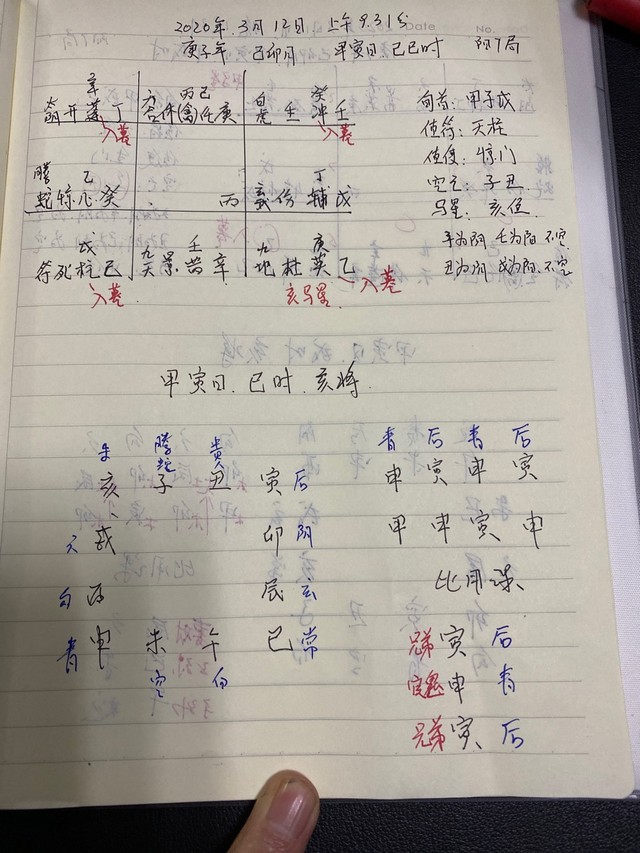 2020年.3月12日 上午9.31分
庚子年 己卯月 甲寅日.己巳时 阳7局
Date
No.
辛 丙己 癸 旬首:甲子戊
开蓬丁 六合休(禽)任庚 白虎生冲壬 值符:天柱
入墓 入墓 值使:惊门
腾 乙 丁 空亡:子丑
蛇惊心癸 丙 玄伤辅戊 马星:亥位
戊 壬 庚 辛为阴 壬为阳 不空
符死柱己 九天景芮辛 九地杜英乙 丑为阴 戌为阳.不空
入墓 亥马星 入墓
甲寅日.巳时.亥将.
腾蛇 贵 青 后 青 后
亥 子 丑 寅后 申 寅 申 寅
天戌 卯阴 甲 申 寅 申
酉 辰玄 比用课
青申 未 午 巳常 兄弟寅 后
空 白 官鬼申 青
兄弟寅 后